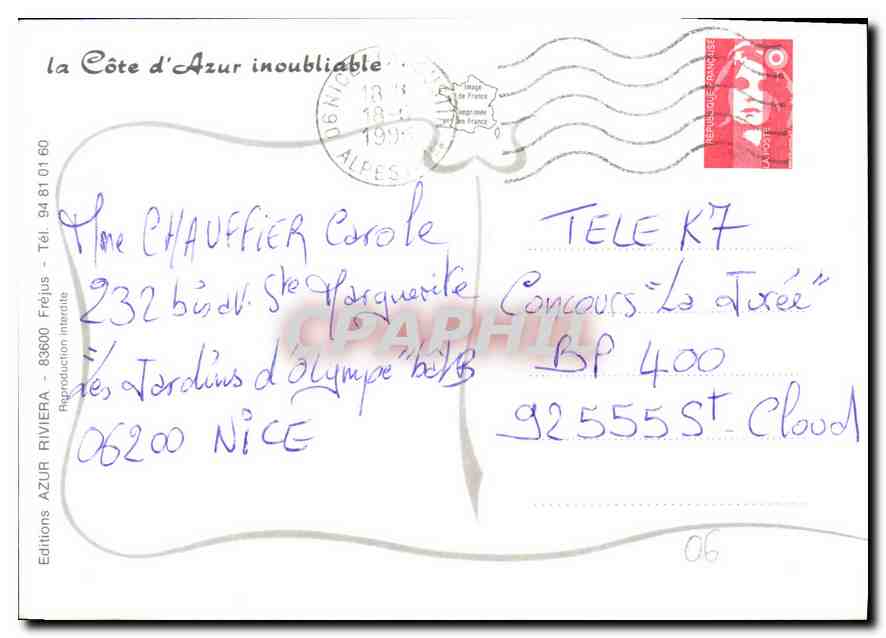 la Côte d'Azur inoubliable
06 NICE
18 H
18-6
199
ALPES
Image
de France
imprimée
en France
RÉPUBLIQUE FRANÇAISE
LA POSTE
Mme CHAUFFIER Carole
232 bis av. Ste Marguerite
"Les Jardins d'Olympe" bât B
06200 NICE
TELE K7
Concours "La Tirée"
BP 400
92555 St-Cloud
06
CPAPHIL
Editions AZUR RIVIERA - 83600 Fréjus - Tél. 94 81 01 60
Reproduction interdite